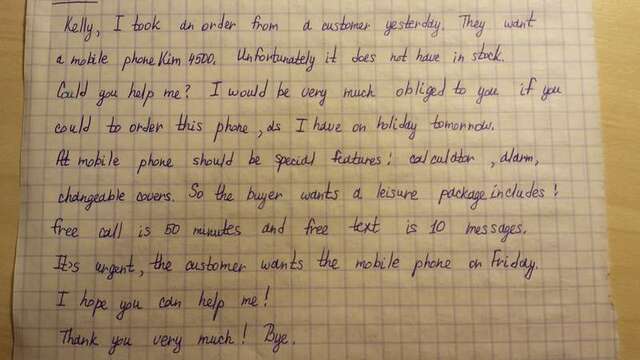 Kelly, I took an order from a customer yesterday. They want
a mobile phone Kim 4500. Unfortunately it does not have in stock.
Could you help me? I would be very much obliged to you if you
could to order this phone, as I have on holiday tomorrow.
At mobile phone should be special features: calculator, alarm,
changeable covers. So the buyer wants a leisure package includes:
free call is 50 minutes and free text is 10 messages.
It's urgent, the customer wants the mobile phone on Friday.
I hope you can help me!
Thank you very much! Bye.